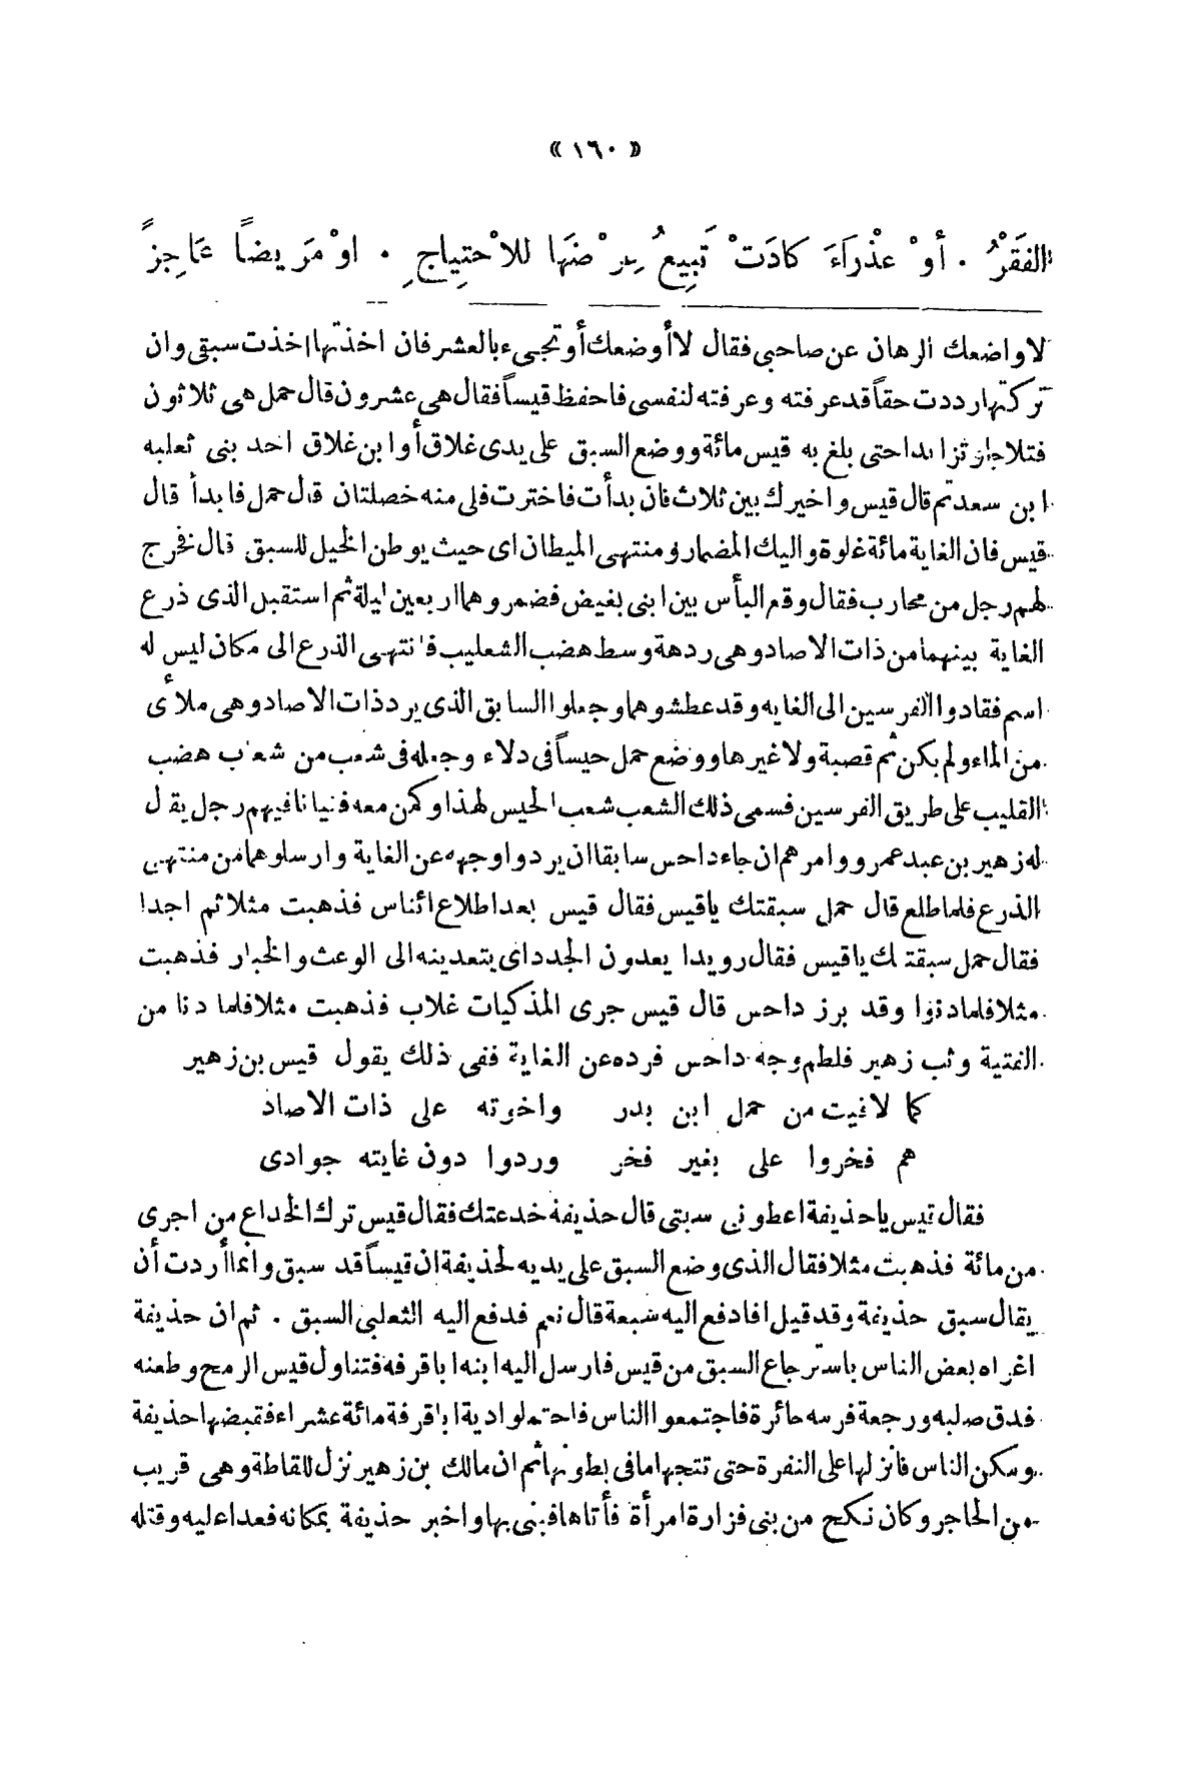 « ١٦٠ »
الفَقْرُ . أوْ عذْرَاءَ كادَتْ تَبِيعُ عِرْضَهَا للاْحتِياجِ . اوْ مَريضاً عَاجِزً
لاواضعك الرهان عن صاحبي فقال لاأوضعك أوتجيء بالعشر فان اخذتها اخذت سبقي وان
تركتها رددت حقاً قد عرفته وعرفته لنفسي فاحفظ قيساً فقال هي عشرون قال حمل هي ثلاثون
فتلاجا وتزايدا حتى بلغ به قيس مائة ووضع السبق على يدى غلاق أوابن غلاق احد بني ثعلبه
ابن سعد ثم قال قيس واخيرك بين ثلاث فان بدأت فاخترت فلى منه خصلتان قال حمل فابدأ قال
قيس فان الغاية مائة غلوة واليك المضمار ومنتهى الميطان اى حيث يوطن الخيل للسبق قال نخرج
لهم رجل من محارب فقال وقع البأس بين ابنى بغيض فضمروهما اربعين ليلة ثم استقبل الذى ذرع
الغاية بينهما من ذات الاصاد وهى ردهة وسط هضب الشعليب فانتهى الذرع الى مكان ليس له
اسم فقادوا الفرسين الى الغايه وقد عطشوهما وجعلوا السابق الذى يرد ذات الاصاد وهى ملأى
من الماء ولم يكن ثم قصبة ولا غيرها ووضع حمل حيساً فى دلاء وجعله فى شعب من شعاب هضب
القليب على طريق الفرسين فسمى ذلك الشعب شعب الحيس لهذا وكمن معه فتيانا فيهم رجل يقال
له زهير بن عبد عمرو وامرهم ان جاء داحس سابقا ان يردوا وجهه عن الغاية وارسلوهما من منتهى
الذرع فلما طلع قال حمل سبقتك ياقيس فقال قيس بعد اطلاع ائناس فذهبت مثلا ثم اجدا
فقال حمل سبقتك ياقيس فقال رويدا يعدون الجدد اى يتعدينه الى الوعث والخبار فذهبت
مثلا فلما دنوا وقد برز داحس قال قيس جرى المذكيات غلاب فذهبت مثلا فلما دنا من
الفتية وثب زهير فلطم وجه داحس فرده عن الغاية ففي ذلك يقول قيس بن زهير
كما لاقيت من حمل ابن بدر واخوته على ذات الاصاد
هم فخروا على بغير فخر وردوا دون غايته جوادى
فقال قيس ياحذيفة اعطوني سبقى قال حذيفة خدعتك فقال قيس ترك الخداع من اجرى
من مائة فذهبت مثلا فقال الذى وضع السبق على يديه لحذيفة ان قيساً قد سبق وانما أردت أن
يقال سبق حذيفة وقد قيل افادفع اليه سبقه قال نعم فدفع اليه الثعلبى السبق . ثم ان حذيفة
اغراه بعض الناس باسترجاع السبق من قيس فارسل اليه ابنه ابا قرفة فتناول قيس الرمح وطعنه
فدق صلبه ورجعة فرسه عائرة فاجتمعوا الناس فاحتملوا دية ابا قرفة مائة عشراء فقبضها حذيفة
وسكن الناس فانزلها على النفرة حتى تتجها مافى بطونها ثم ان مالك بن زهير نزل للقاطة وهى قريب
من الحاجر وكان نكح من بنى فزارة امرأة فأتاها فبنى بها واخبر حذيفة بمكانه فعدا عليه وقتله